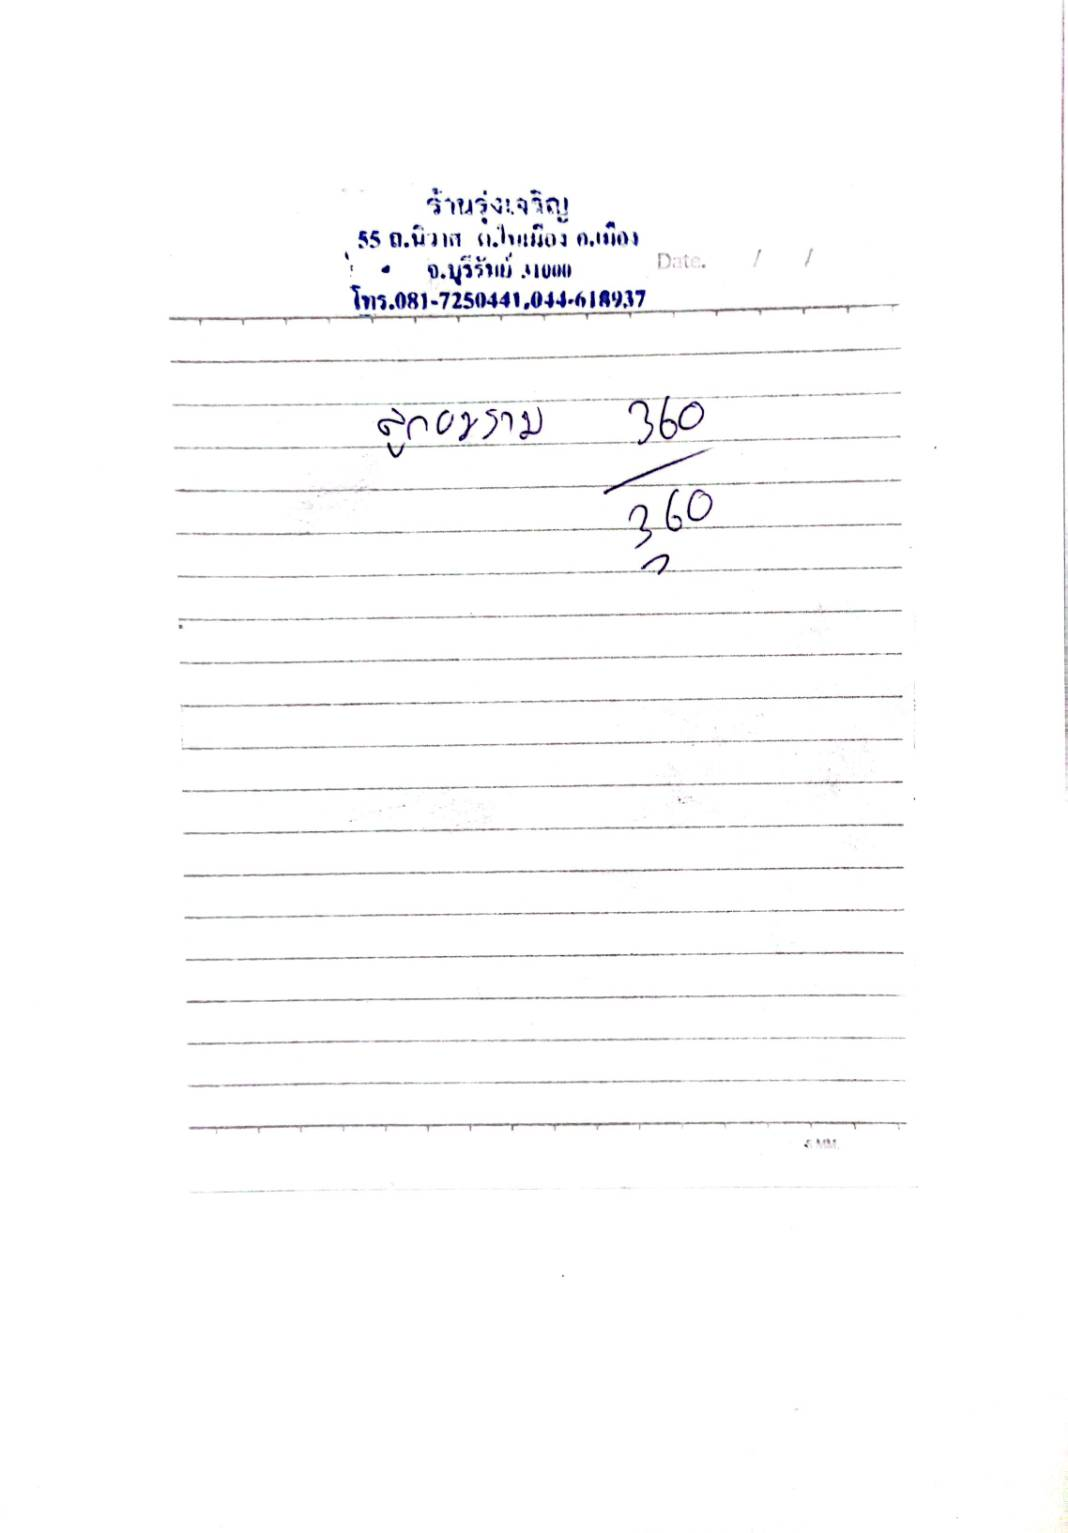 ร้านรุ่งเจริญ
55 ถ.นิวาศ ต.ในเมือง อ.เมือง
จ.บุรีรัมย์ 31000
โทร.081-7250441,044-618937
Date. / /
360
360